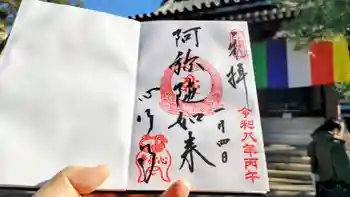 奉拝
令和八年丙午
一月四日
阿弥陀如来